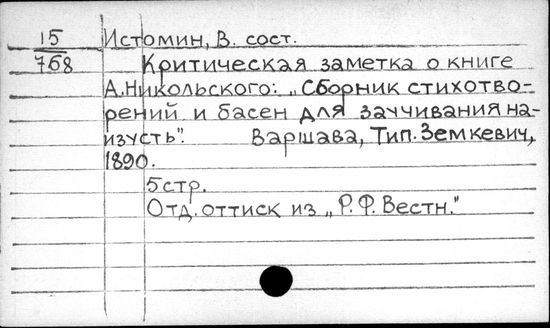 15
768
Истомин, В. сост.
Критическая заметка о книге
А.Никольского: „Сборник стихотво-
рений и басен для заучивания на-
изусть".  Варшава, Тип. Земкевич,
1890.
5 стр.
Отд. оттиск из „Р.Ф.Вестн."